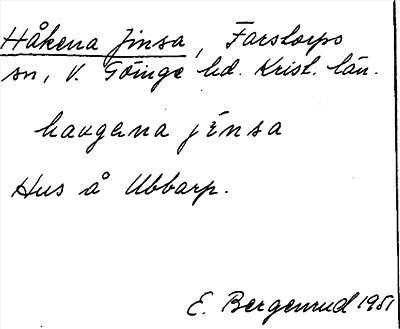 Håkena Jinsa, Farstorps
sn, V. Göinge hd. Krist. län.
haugena jinsa
Hus å Ubbarp.
E. Bergenrud 1951